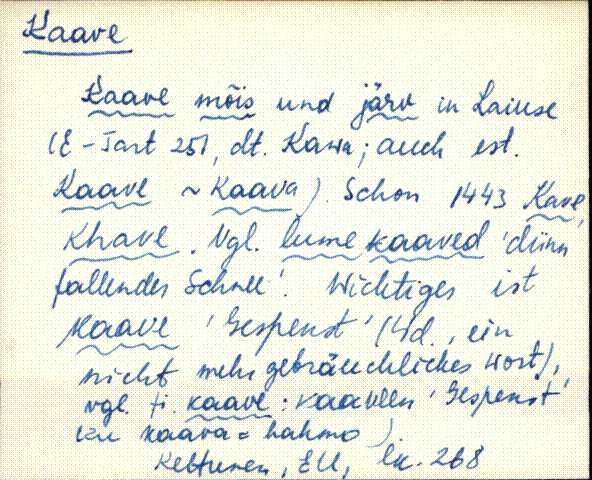 Kaave
Kaave mõis und järv in Laiuse
(E-Tart 251, dt. Kawa; auch est.
Kaave ~ Kaava). Schon 1443 Kave,
Khave. Vgl. lume kaaved 'dünn
fallendes Schnee'. Wichtiges ist
kaave 'Gespenst' (Wd., ein
nicht mehr gebräuchliches Wort),
vgl. fi. kaave : kaaveen 'Gespenst'
(zu kaava = hahmo)
Kettunen, EU, lk. 268